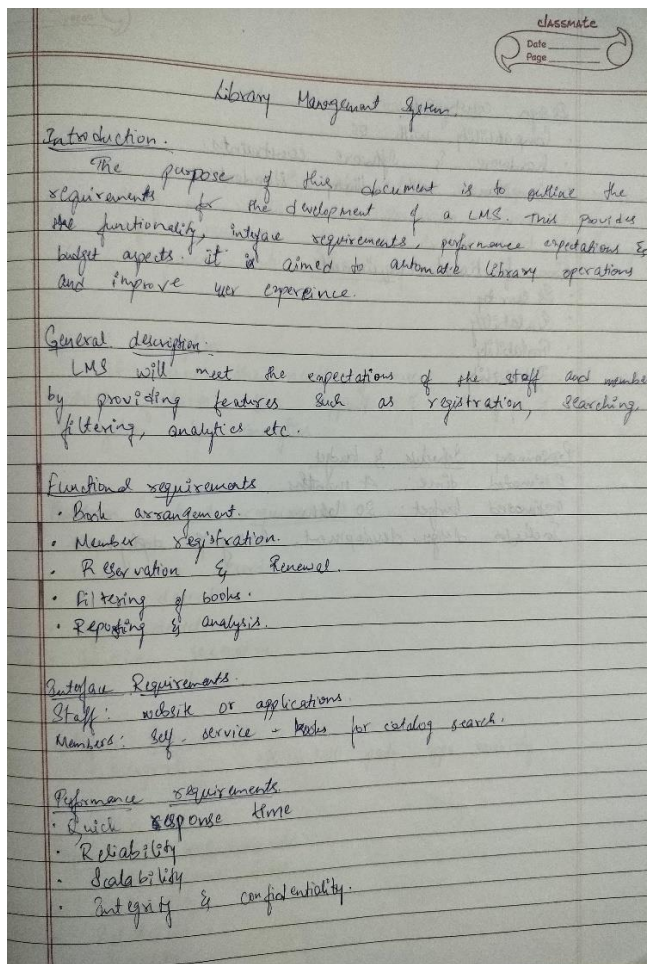 classmate
Date
Page
Library Management System.
Introduction.
The purpose of this document is to outline the
requirements for the development of a LMS. This provides
the functionality, interface requirements, performance expectations &
budget aspects. it is aimed to automate library operations
and improve user experince.
General description.
LMS will meet the expectations of the staff and membe
by providing features such as registration, searching,
filtering, analytics etc.
Functional requirements
• Book arrangement.
• Member registration.
• Reservation & Renewal.
• Filtering of books.
• Reporting & analysis.
Interface Requirements.
Staff: website or applications.
Members: Self-service - for catalog search.
Performance requirements.
• Quick response time
• Reliability
• Scalability
• Integrity & confidentiality.